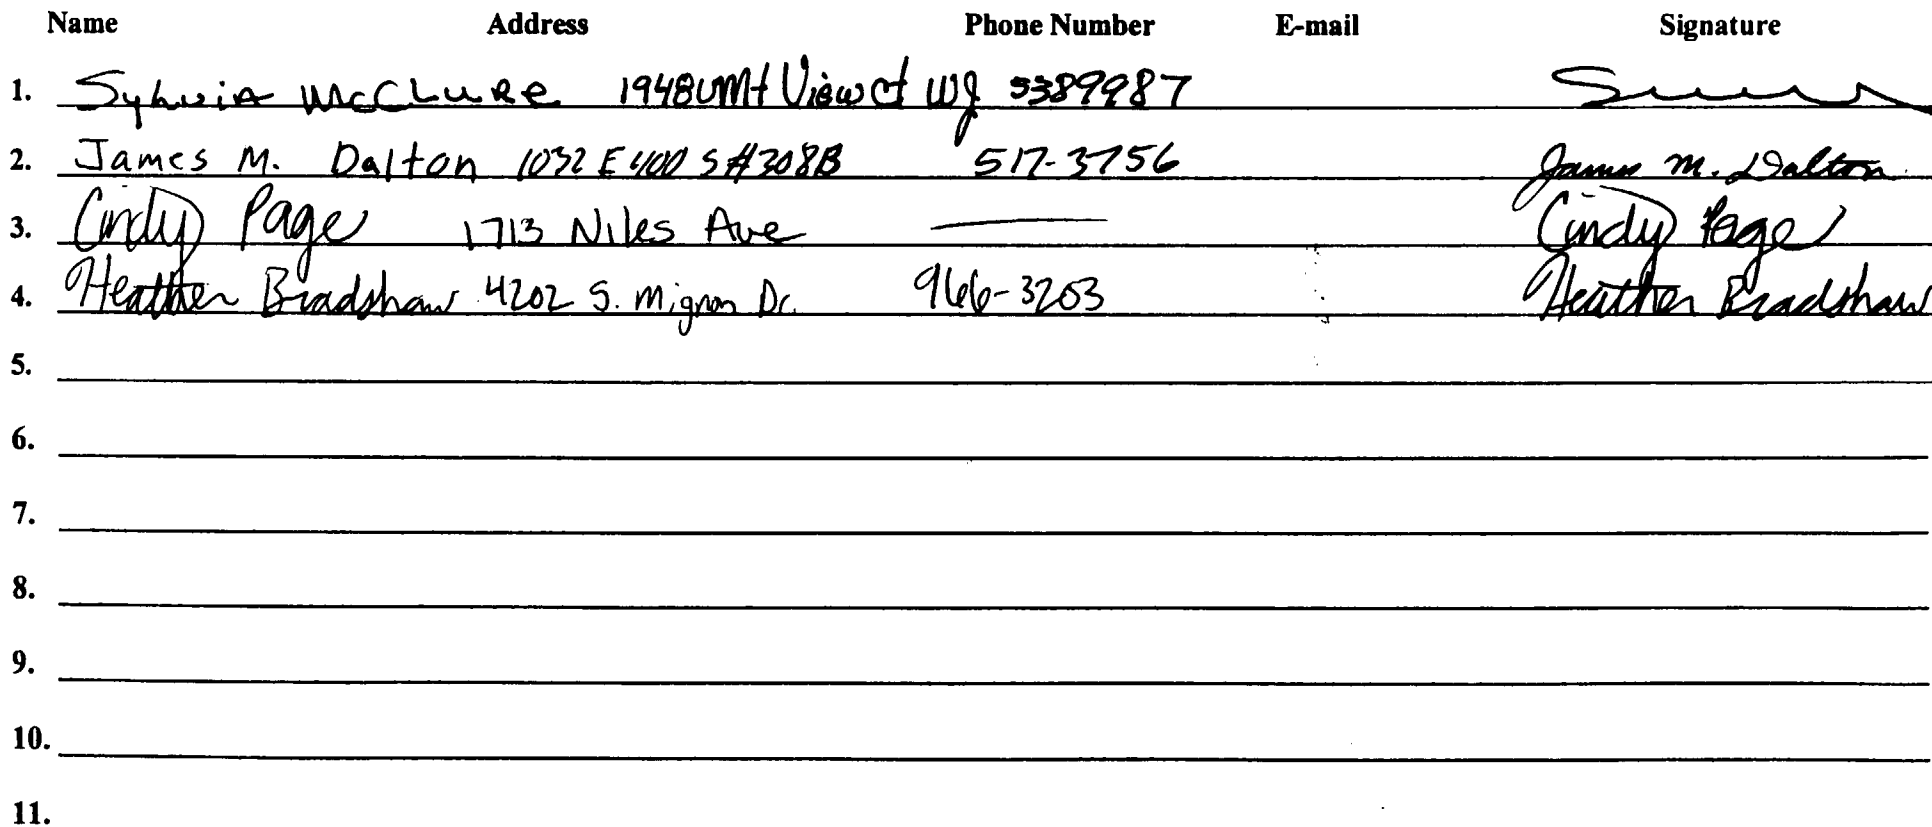 Name Address Phone Number E-mail Signature
1. Sylvia McClure 1948 Mt View Ct WJ 5389987
2. James M. Dalton 1032 E 400 S #308B 517-3756 James M. Dalton
3. Cindy Page 1713 Niles Ave — Cindy Page
4. Heather Bradshaw 4202 S. Mignon Dr. 966-3203 Heather Bradshaw
5.
6.
7.
8.
9.
10.
11.